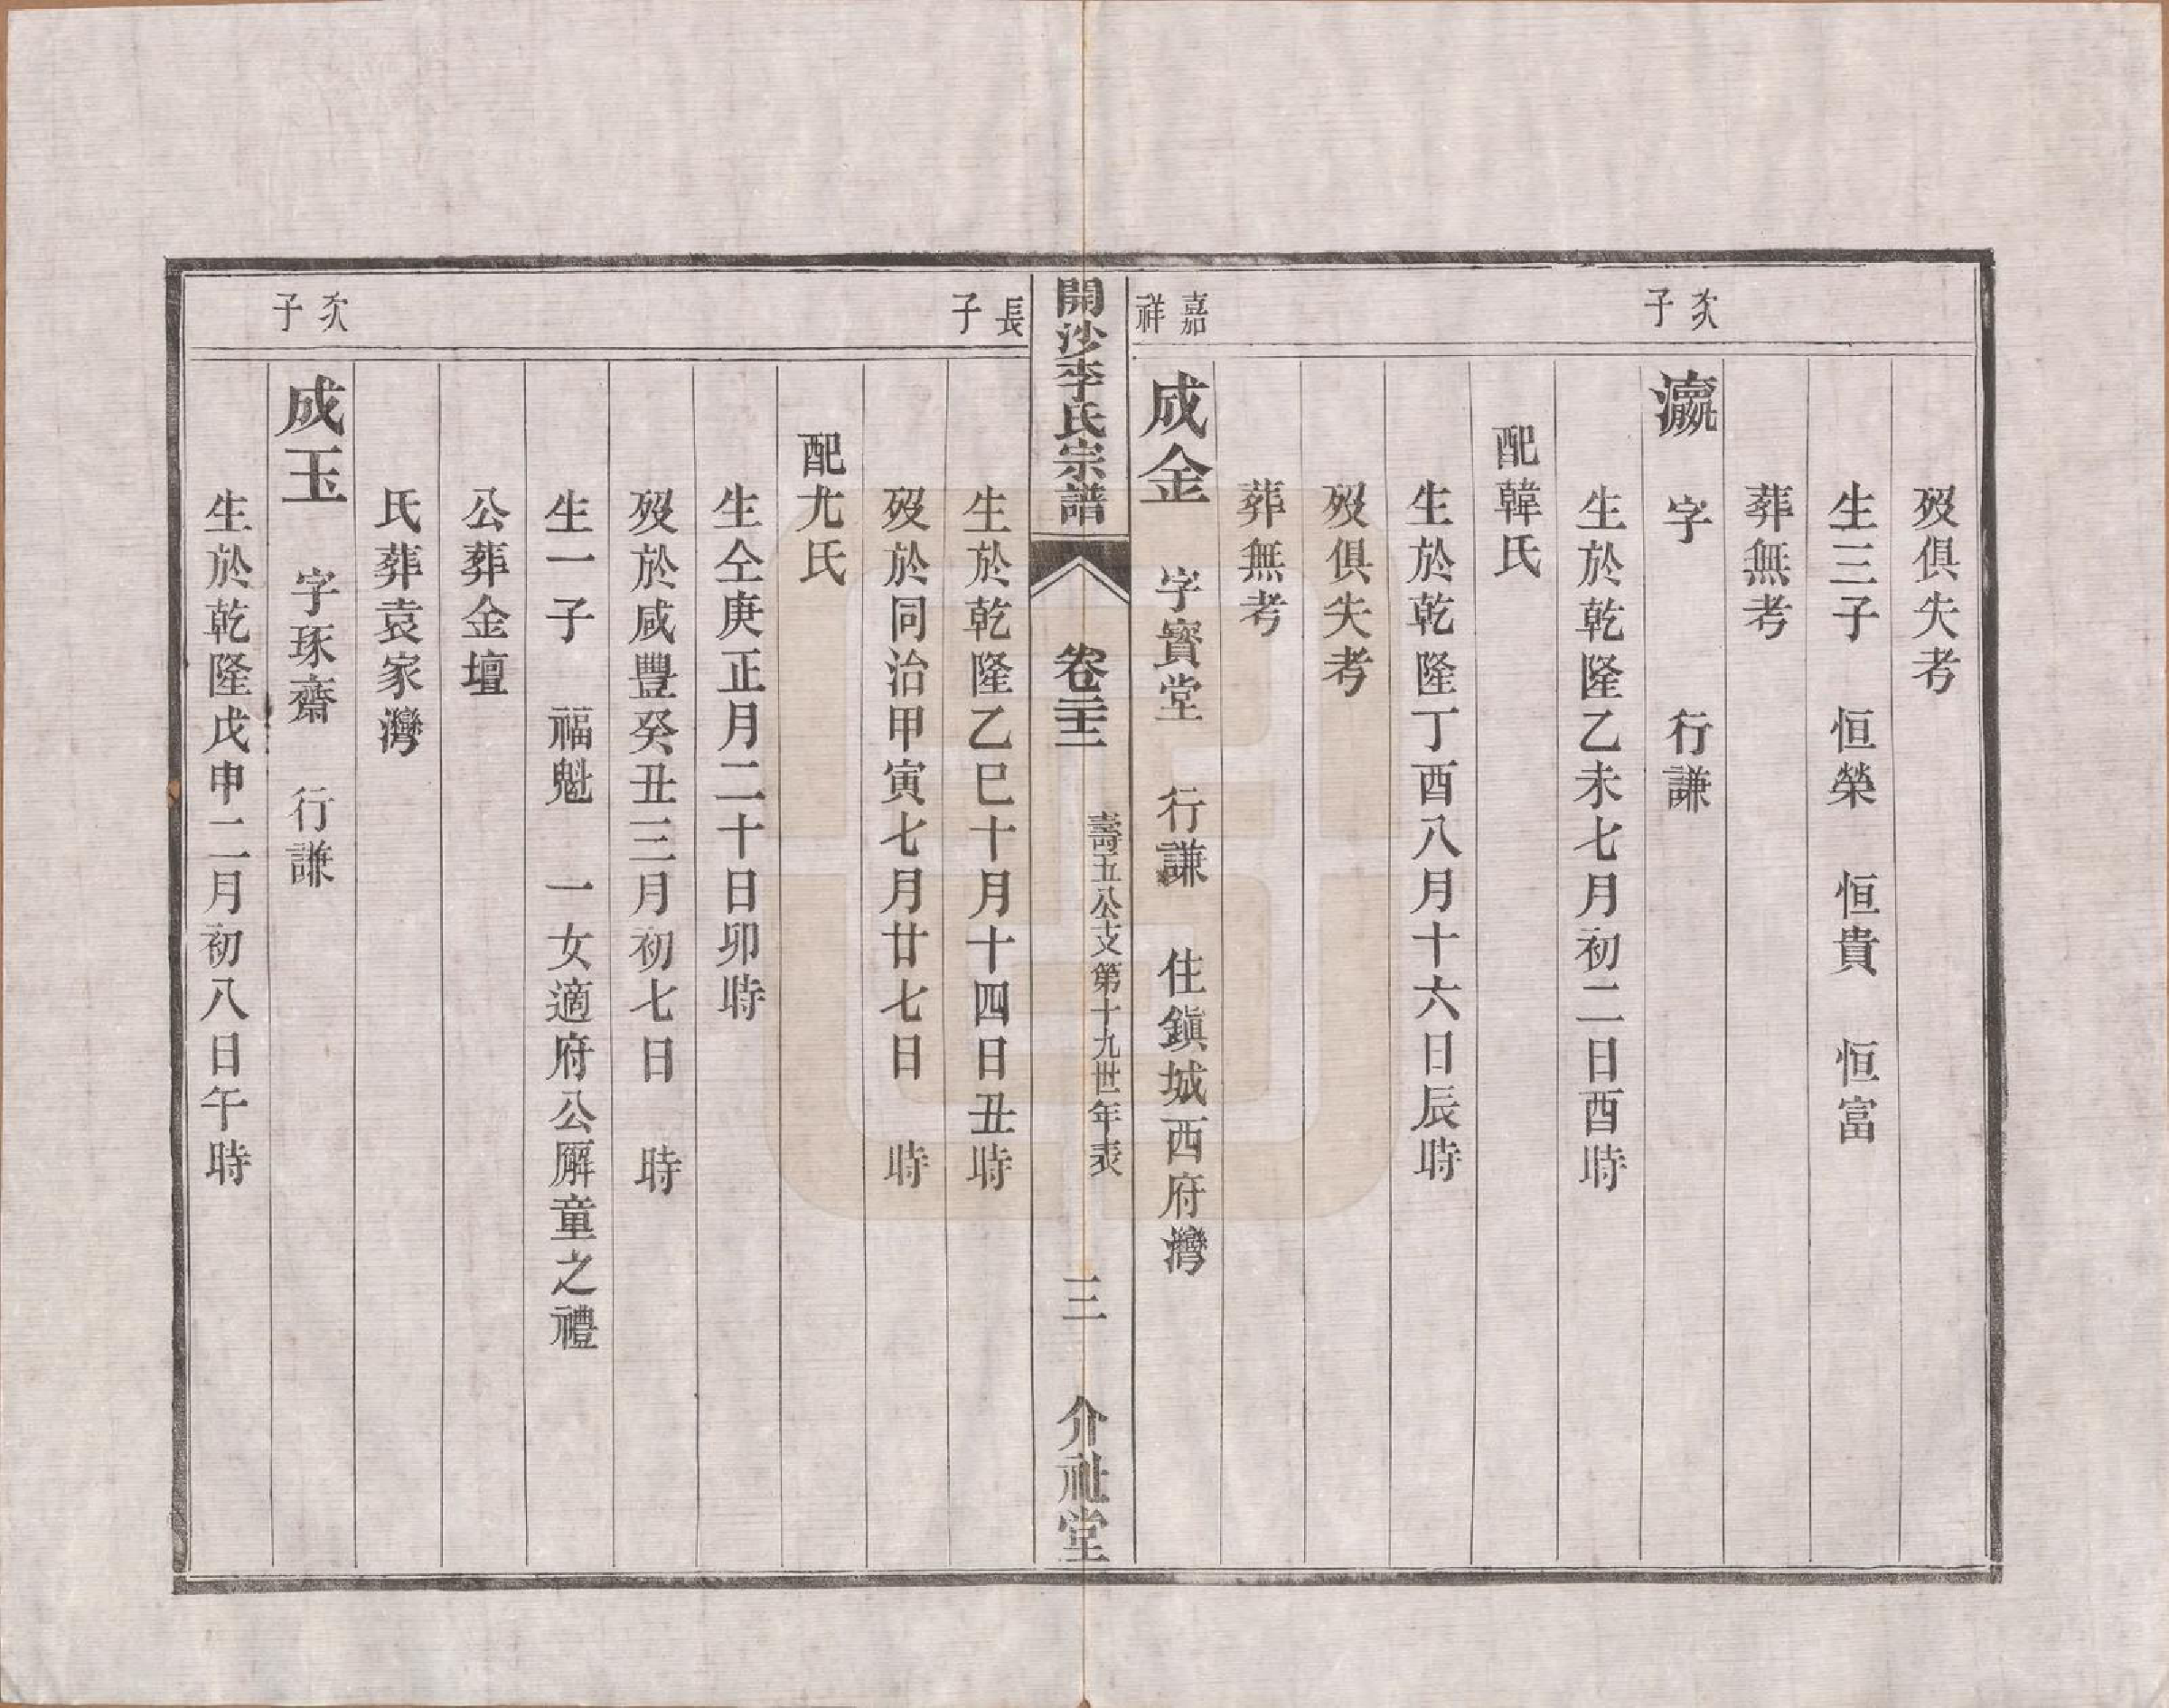 歿俱失考
生三子　恒榮　恒貴　恒富
葬無考
次子
瀛　字　　　行謙
生於乾隆乙未七月初二日酉時
配韓氏
生於乾隆丁酉八月十六日辰時
歿俱失考
葬無考
嘉祥
成金　字寳堂　行謙　住鎭城西府灣
開沙李氏宗譜
卷二十三
壽五公支第十九世年表
三
介祉堂
長子
生於乾隆乙巳十月十四日丑時
歿於同治甲寅七月廿七日　時
配尤氏
生仝庚正月二十日卯時
歿於咸豐癸丑三月初七日　時
生一子　福魁　一女適府公廨童之禮
公葬金壇
氏葬袁家灣
次子
成玉　字琢齋　行謙
生於乾隆戊申二月初八日午時